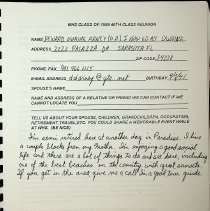 WHS CLASS OF 1959 50TH CLASS REUNION
NAME DEWARD DWAYNE I HAVE GO BY DWAYNE
ADDRESS 2222 DR SARASOTA FL
ZIP CODE 34238
PHONE, FAX 941 966 2115
E-MAIL ADDRESS @ .net BIRTHDAY
SPOUSE'S NAME
NAME AND ADDRESS OF A RELATIVE OR FRIEND WE CAN CONTACT IF WE
CANNOT LOCATE YOU
TELL US ABOUT YOUR SPOUSE, CHILDREN, GRANDCHILDREN, OCCUPATION,
RETIREMENT, TRAVEL, ETC. YOU COULD SHARE A MEMORABLE EVENT WHILE
AT WHS. (BE NICE)
I'm semi retired here at another day in Paradise. I live
a couple blocks from my Mother. I'm enjoying a good social
life and there are a lot of things to do and see here, including
one of the best beaches in the country with great sunsets.
If you get in the area give me a call I'm a good tour guide.